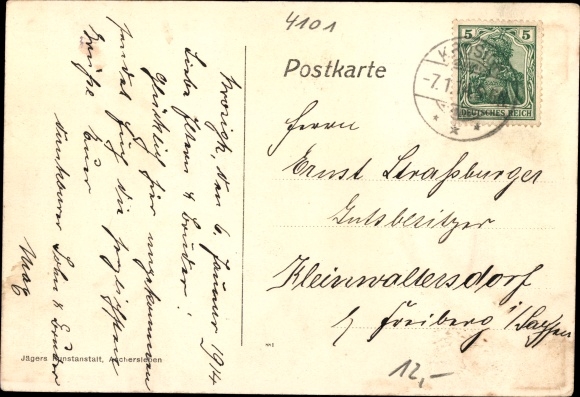 4101
Postkarte
5 5
DEUTSCHES REICH
-7.1.
Herrn
Ernst Straßburger
Gutsbesitzer
Kleinwaltersdorf
b/ Freiberg i/Sachsen
12,-
den 6. Januar 1914
Liebe Eltern & Bruder!
Glücklich hier angekommen
sendet Euch die herzlichsten
Grüße Euer
dankbarer Sohn & Bruder
Max
Jägers Kunstanstalt, Aschersleben